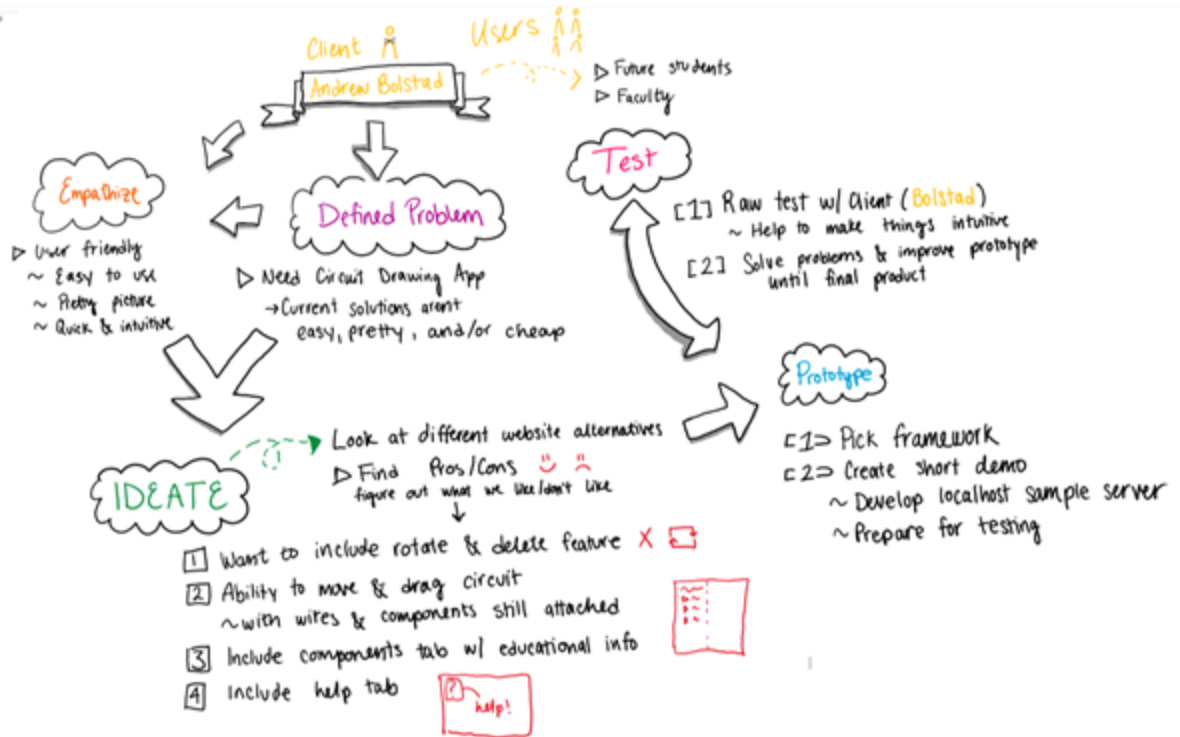 Client
Users
Andrew Bolstad
▷ Future students
▷ Faculty
Empathize
▷ User friendly
~ Easy to use
~ Pretty picture
~ Quick & intuitive
Defined Problem
▷ Need Circuit Drawing App
→ Current solutions arent
easy, pretty, and/or cheap
Test
[1] Raw test w/ Client (Bolstad)
~ Help to make things intuitive
[2] Solve problems & improve prototype
until final product
Prototype
[1] Pick framework
[2] Create short demo
~ Develop localhost sample server
~ Prepare for testing
IDEATE
Look at different website alternatives
▷ Find Pros/Cons
figure out what we like/don't like
1 Want to include rotate & delete feature X
2 Ability to move & drag circuit
~ with wires & components still attached
3 Include components tab w/ educational info
4 Include help tab
? help!